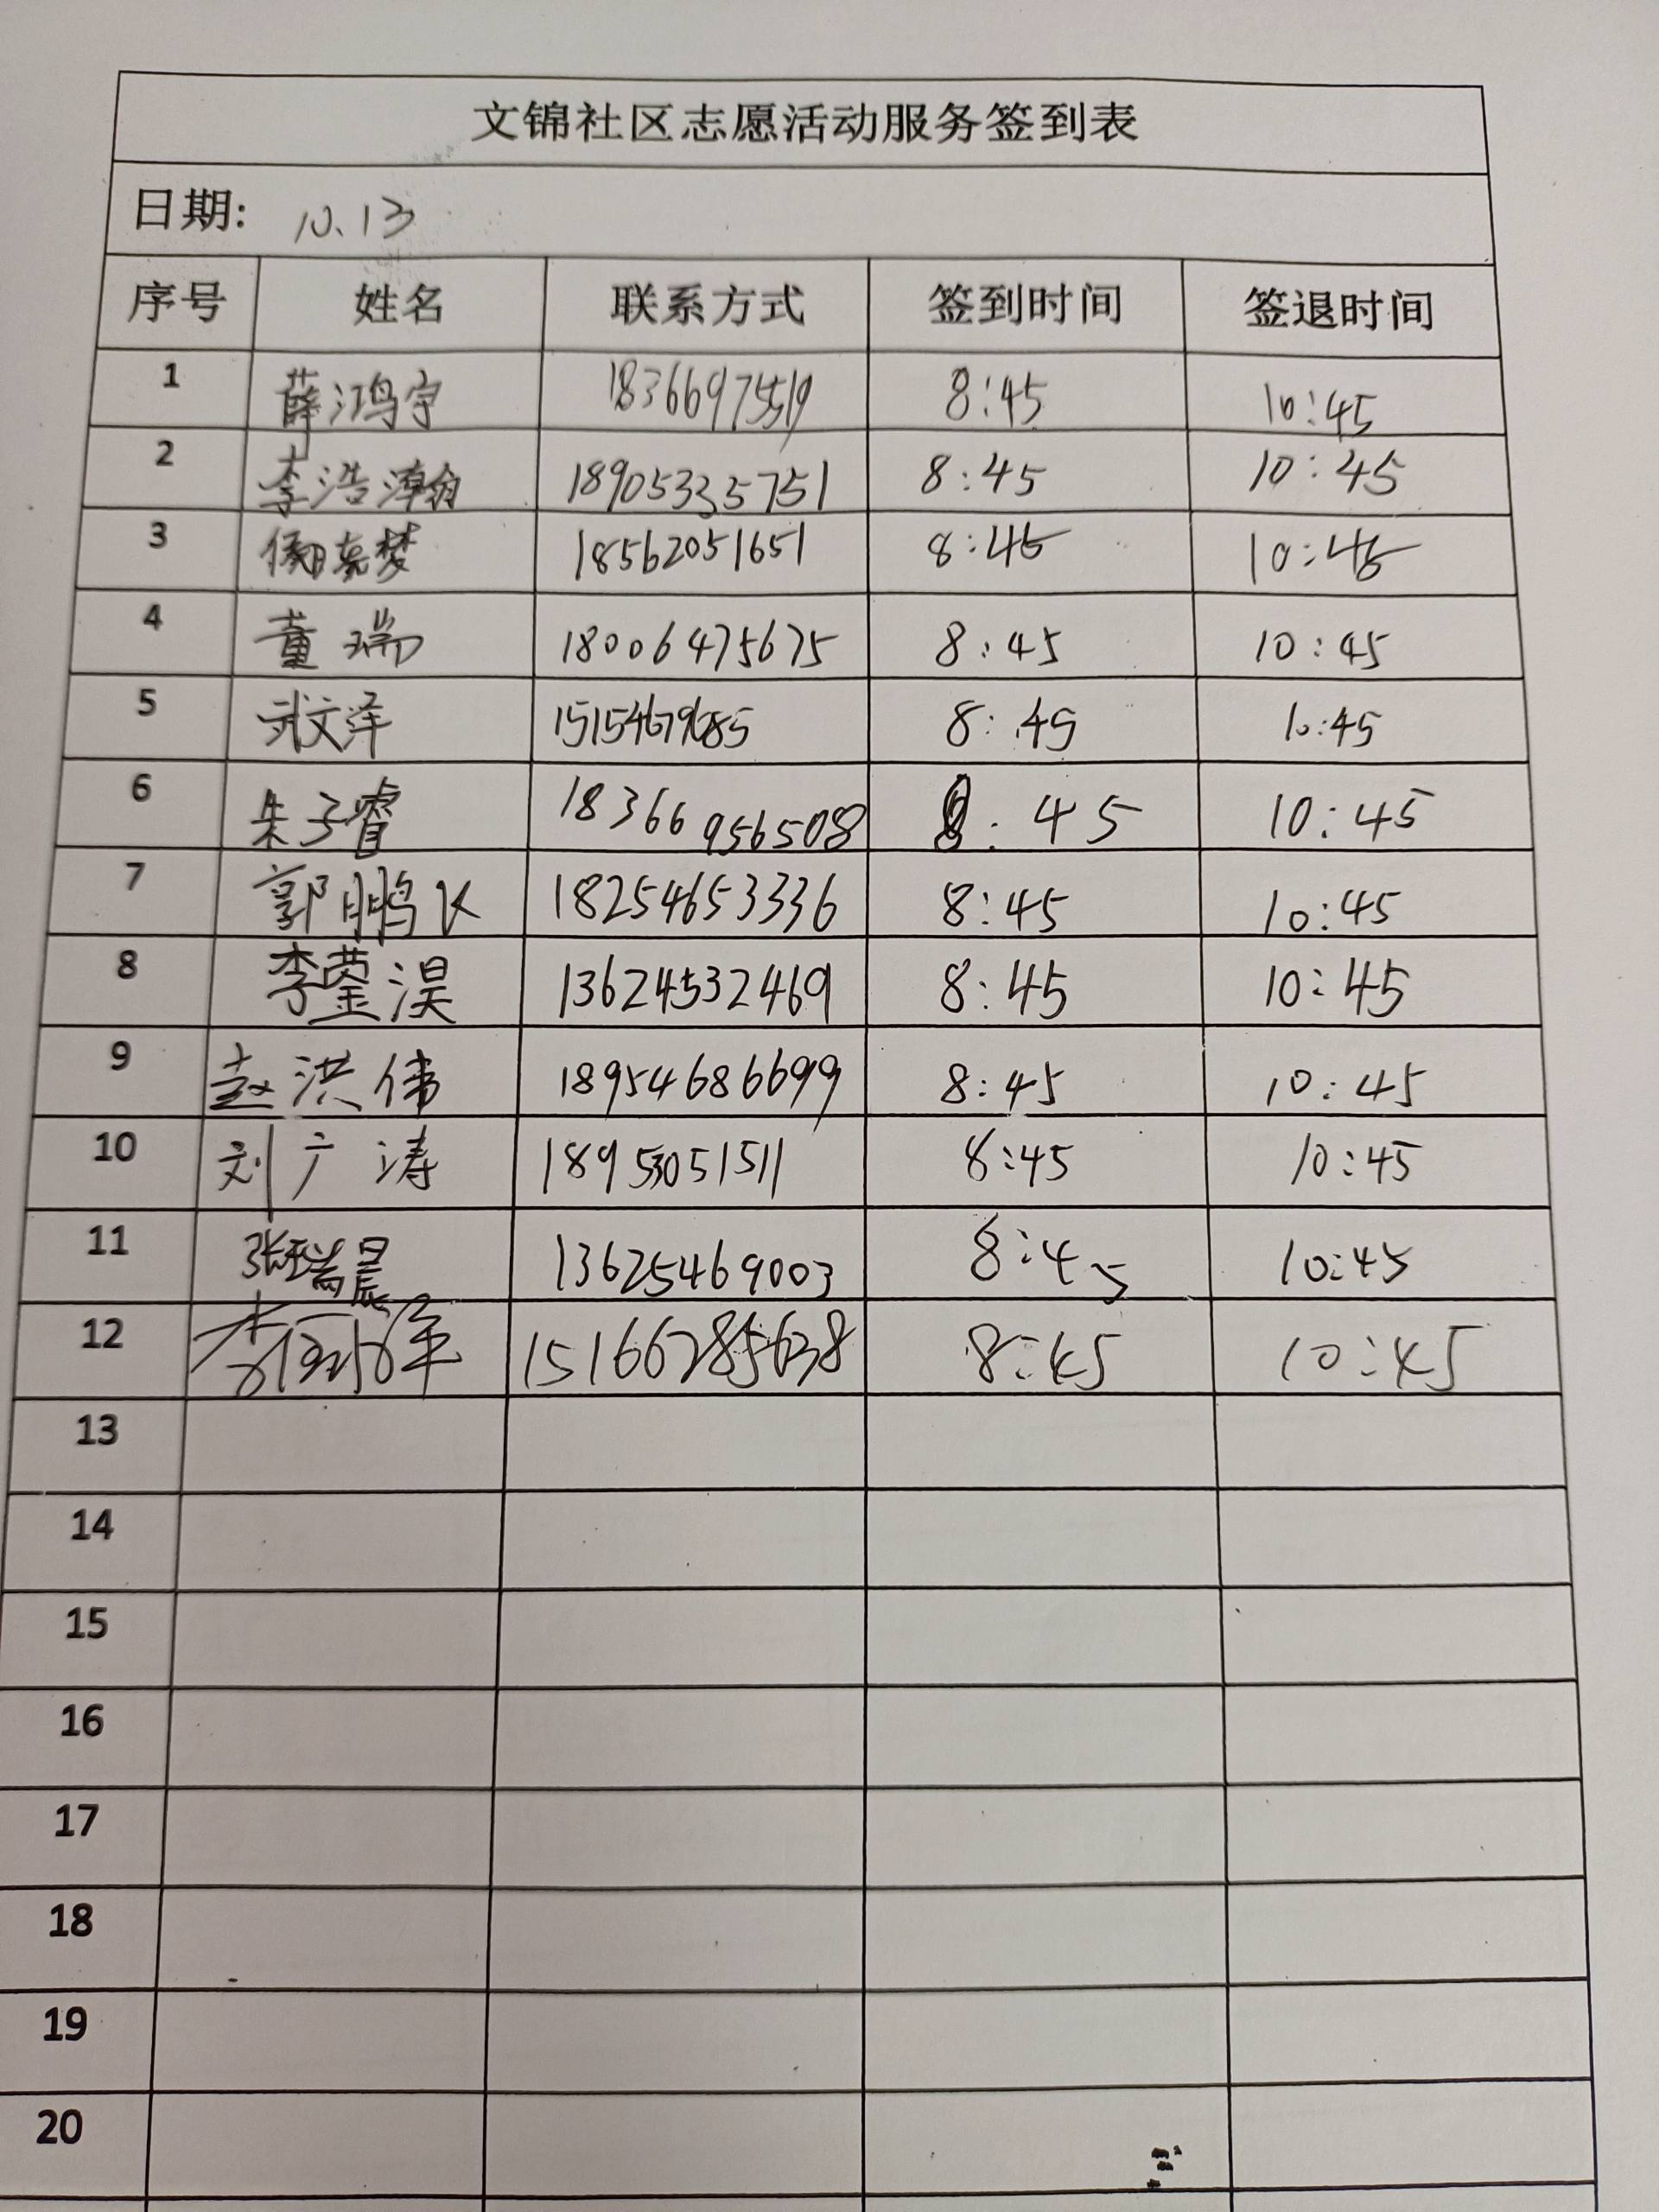 文锦社区志愿活动服务签到表
日期: 10.13
序号 姓名 联系方式 签到时间 签退时间
1 薛鸿宇 8:45 10:45
2 李浩瀚 18905335751 8:45 10:45
3 18562051651 8:45 10:45
4 董瑞 18006475675 8:45 10:45
5 武文泽 15154679685 8:45 10:45
6 朱子睿 183669956508 8:45 10:45
7 郭鹏飞 18254653336 8:45 10:45
8 李蓥淏 13624532469 8:45 10:45
9 赵洪伟 18954686699 8:45 10:45
10 刘广涛 18953051511 8:45 10:45
11 张瑞晨 13625469003 8:45 10:45
12 15166285638 8:45 10:45
13
14
15
16
17
18
19
20